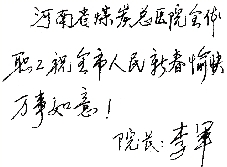 河南省煤炭总医院全体
职工祝全市人民新春愉快
万事如意！
院长：李军